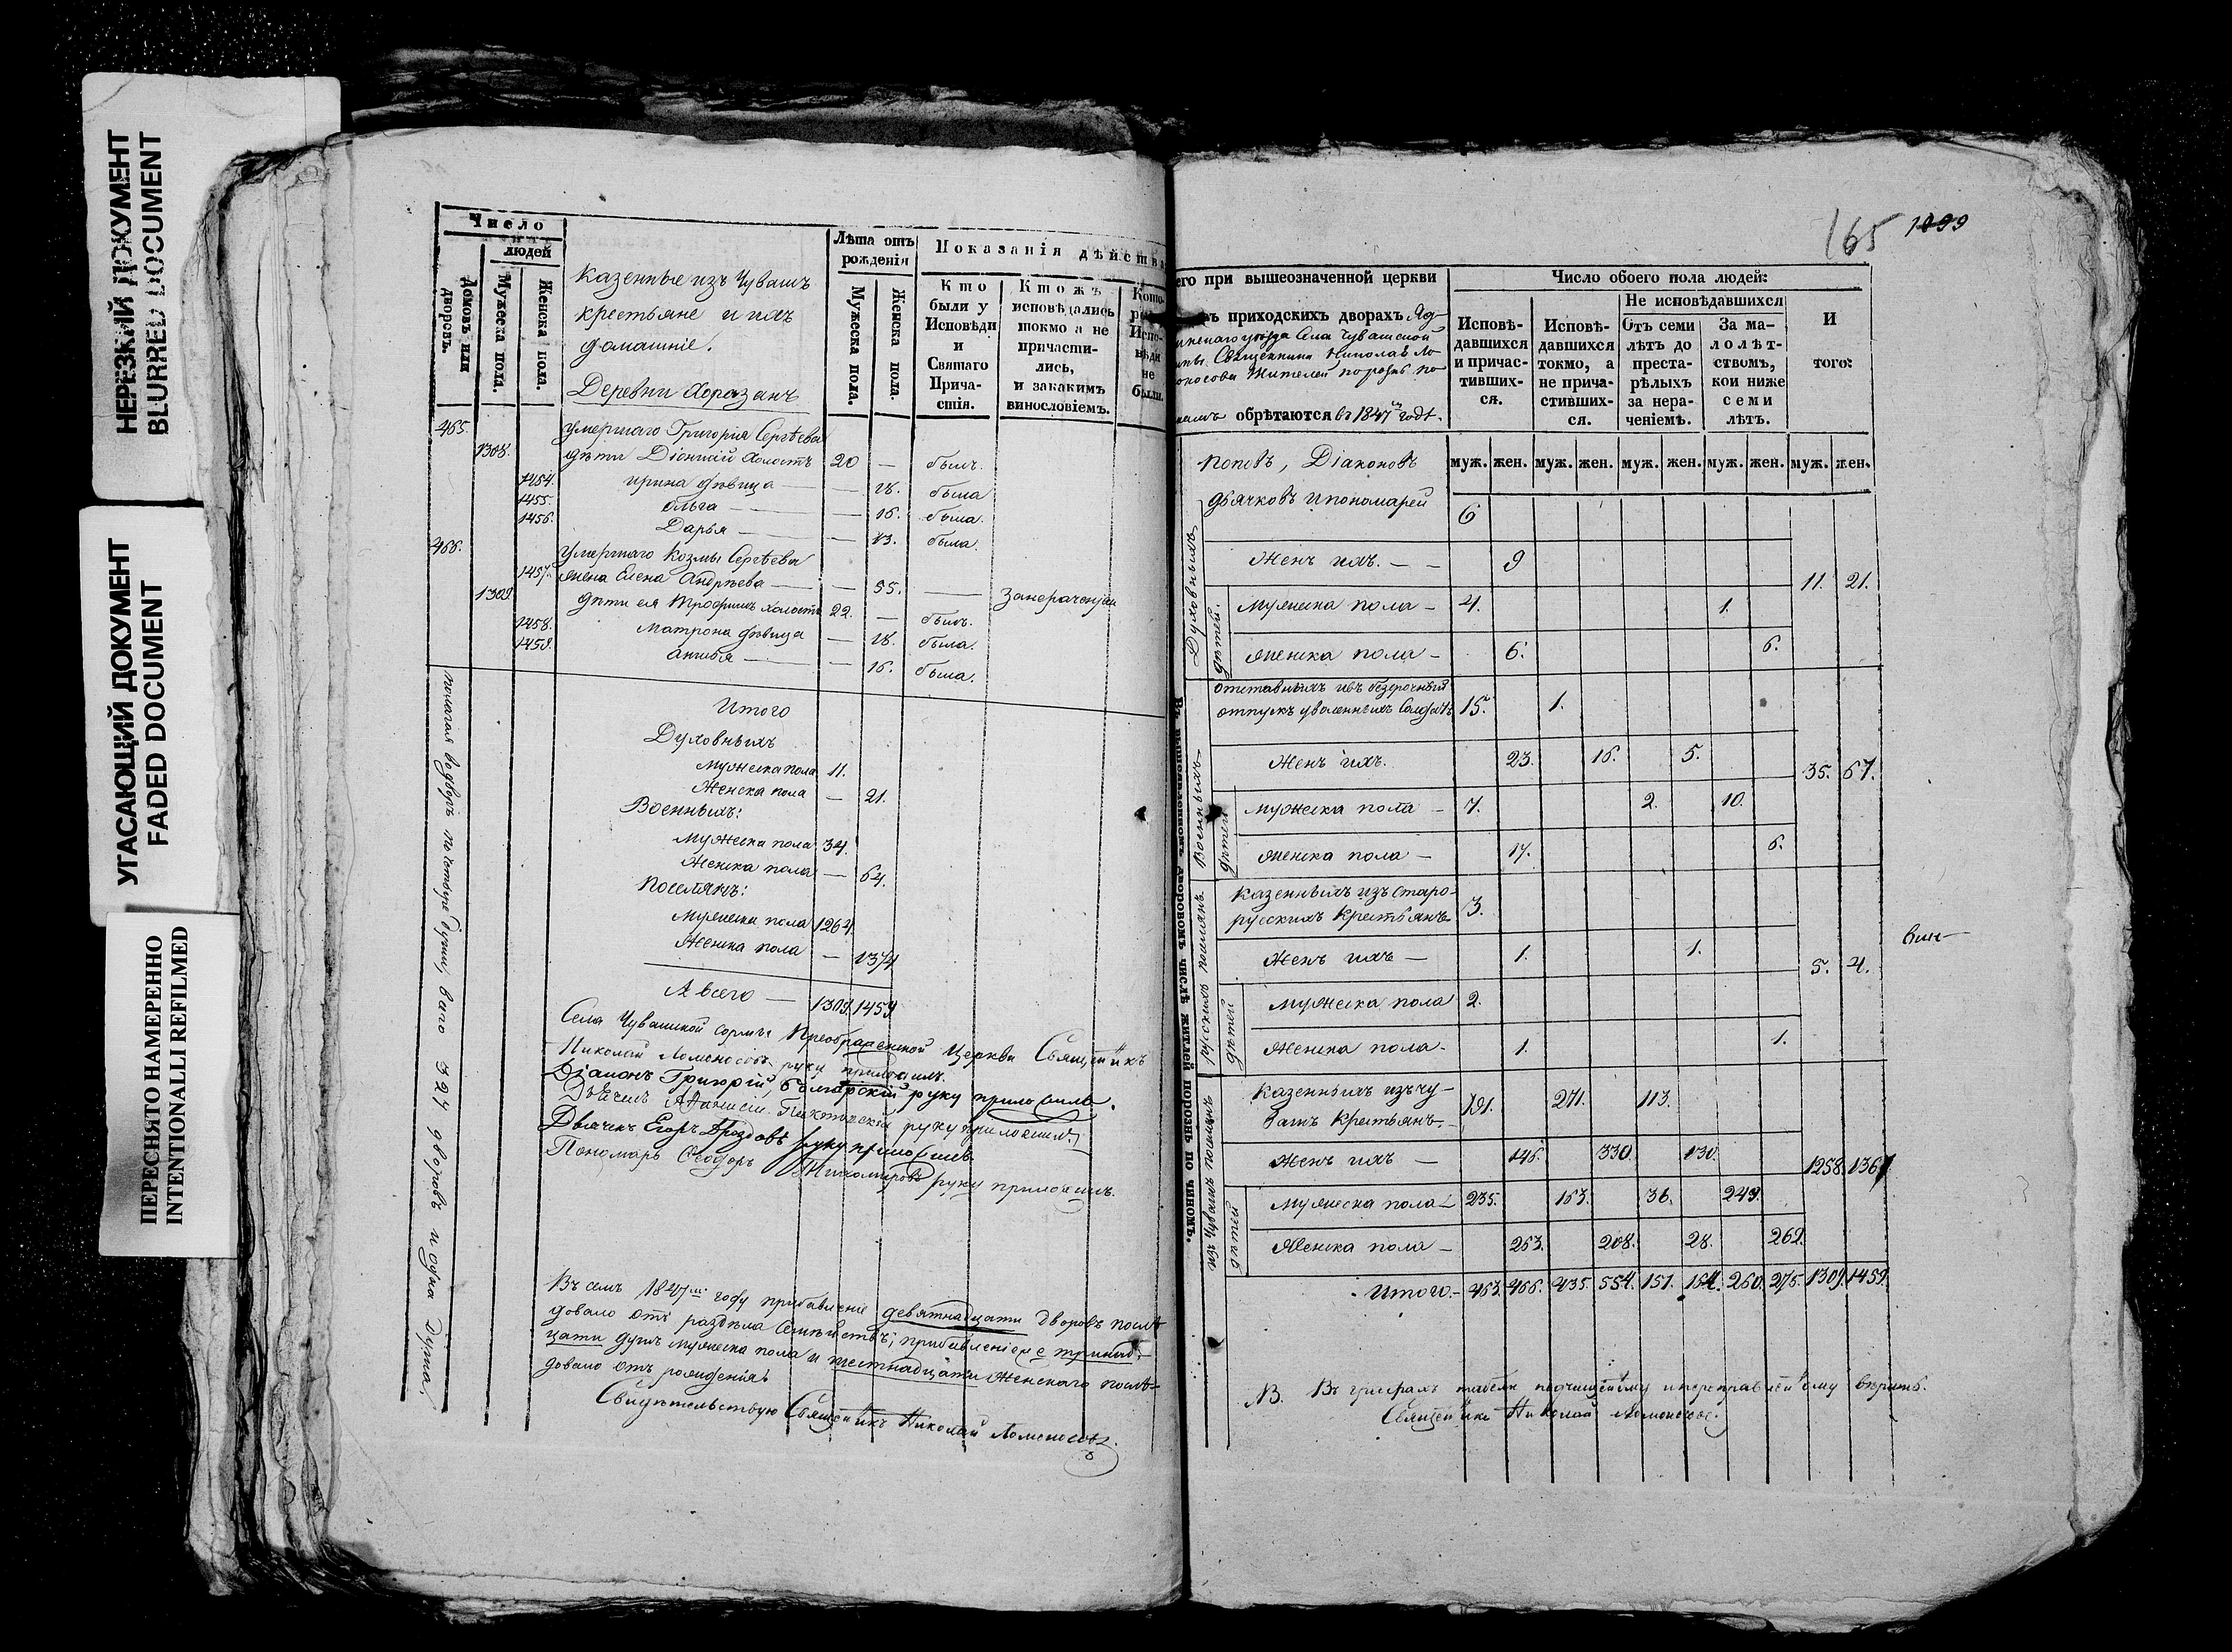 НЕРЕЗКИЙ ДОКУМЕНТ
BLURRED DOCUMENT
УГАСАЮЩИЙ ДОКУМЕНТ
FADED DOCUMENT
ПЕРЕСНЯТО НАМЕРЕННО
INTENTIONALLI REFILMED
Число
людей
Домовъ или дворовъ.
Мужеска пола.
Женска пола.
Казенные изъ Чувашъ
крестьяне и ихъ
домашніе.
Деревни Хоразанъ
Лѣта отъ рожденія
Мужеска пола.
Женска пола.
Показанія дѣйств
Кто были у Исповѣди и Святаго Прича- стія.
Ктожъ исповѣдались токмо а не причасти- лись, и закакимъ винословіемъ.
Кото- Испо- вѣди не были.
465. умершаго Григорія Сергѣева
1308. дѣти Діонисій холостъ 20 — былъ.
1454. Ирина дѣвица — 18. была
1455. Ольга — 16. была.
1456. Дарья — 13. была.
466. Умершаго Козмы Сергѣева
1457. жена Елена Андрѣева — 55. — Занераченіем
1309 дѣти ея Трофимъ холостъ 22. — былъ.
1458. Матрона дѣвица — 18. была.
1459. — 16. была.
Итого
Духовныхъ
Мужеска пола 11.
Женска пола — 21.
Военныхъ:
Мужеска пола 34.
Женска пола — 64.
Поселянъ:
Мужеска пола 1264
Женска пола — 1374
А всего — 1309 1459
Села Чувашской Сормы Преображенской Церкви Священникъ
Николай Ломоносовъ руку приложилъ.
Діаконъ Григорій Болгарскій руку приложилъ.
руку приложилъ
Дьячекъ Егоръ Дроздовъ руку приложилъ.
Пономарь Ѳеодоръ Тихомировъ руку приложилъ.
Въ семъ 1847мъ году прибавленіе девятнадцати дворовъ послѣ-
довало отъ раздѣла семействъ; прибавленіе тринад-
цати душъ мужеска пола и шестнадцати Женскаго послѣ-
довало отъ рожденія
Свидѣтельствую Священникъ Николай Ломоносовъ.
Полагая водворъ по четыре души, всего 327 дворовъ и одна душа.
165 1099
его при вышеозначенной церкви
въ приходскихъ дворахъ Яд-
уѣзда Села Чувашской
Священника Николая Ло-
моносова Жителей порознь по
обрѣтаются въ 1847 годѣ.
Число обоего пола людей:
Исповѣ- давшихся и причас- тивших- ся.
Исповѣ- давшихся токмо, а не прича- стивших- ся.
Не исповѣдавшихся
Отъ семи лѣтъ до преста- рѣлыхъ за нера- ченіемъ.
За ма- лолѣт- ствомъ, кои ниже семи лѣтъ.
И того:
муж. жен. муж. жен. муж. жен. муж. жен. муж. жен.
Въ вышеявленномъ дворовомъ числѣ жителей порознь по чиномъ.
Духовныхъ
Поповъ, Діаконовъ
дьячковъ и пономарей 6
Женъ ихъ. — 9
11. 21.
дѣтей.
Мужеска пола — 4. 1.
Женска пола — 6. 6.
Военныхъ
отставныхъ ивъ безсрочный
отпускъ уволенныхъ Солдатъ 15. 1.
Женъ ихъ. 23. 16. 5.
35. 67.
дѣтей
Мужеска пола — 7. 2. 10.
Женска пола — 17. 6.
русскихъ поселянъ.
Казенныхъ изъ старо-
русскихъ Крестьянъ 3.
Женъ ихъ — 1. 1.
5. 4.
дѣтей
Мужеска пола 2.
Женска пола. 1. 1.
изъ Чувашъ поселянъ
Казенныхъ изъ чу-
вашъ Крестьянъ. 191. 271. 113.
Женъ ихъ — 146. 330. 130.
1258. 1367
дѣтей
Мужеска пола 235. 163. 36. 249.
Женска пола — 263. 208. 28. 262.
Итого. 463. 466. 435. 554. 151. 164. 260. 275. 1309. 1459.
NB. Въ графахъ табели подчищенному и переправленному вѣрить.
Священникъ Николай Ломоносовъ.